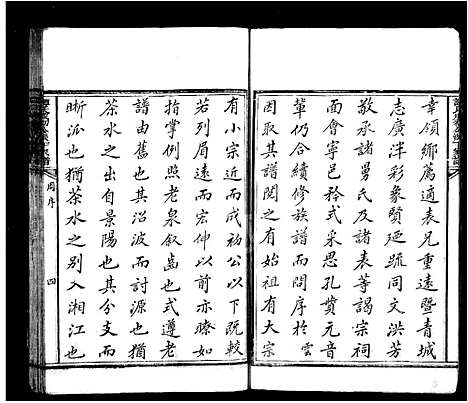 幸領鄉薦適表兄重遠暨青城
志廣泮彩象賢廼疏同文洪芳
敬承諸舅氏及諸表等謁宗祠
面會寧邑矜式采思孔賁元音
輩仍合續修族譜而問序於雲
因取其譜閱之有始祖有大宗
有小宗近而成初公以下既較
若列眉遠而宏仲以前亦瞭如
指掌例照老泉敘齒也式遵老
譜由舊也其沿波而討源也猶
茶水之出自景陽也其分支而
晰派也猶茶水之別入湘江也
周序
四